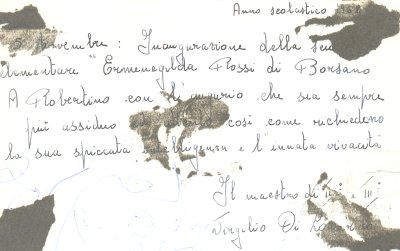 Anno scolastico
Novembre: Inaugurazione della
elementare "Ermenegilda Rossi di Borsano
A Robertino con l'augurio che sia sempre
più assiduo così come richiedono
la sua spiccata intelligenza e l'innata vivacità
Il maestro di II° e III°
Virgilio Di